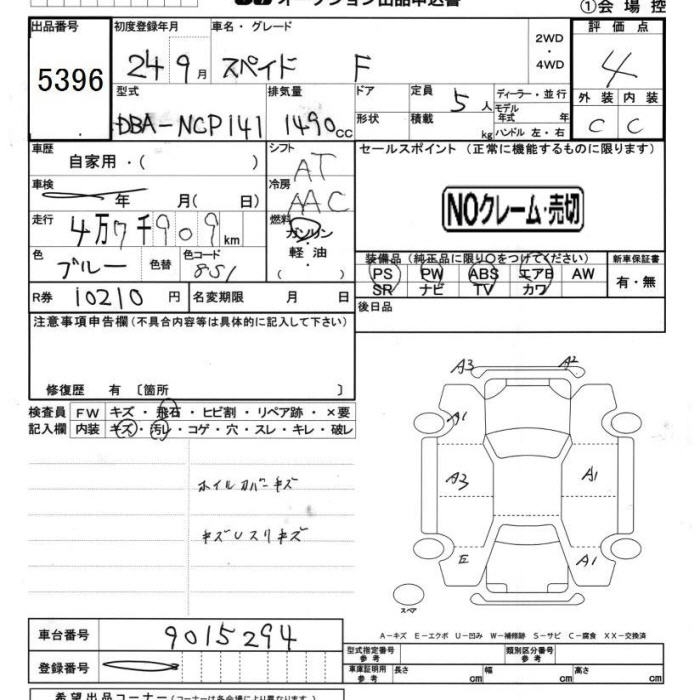 オークション出品申込書 ①会場控
出品番号 初度登録年月 車名・グレード 評価点
5396 24 9月 スペイド F 2WD ・ 4WD 4
型式 排気量 ドア 定員 5人 ディーラー・並行 外装 内装
DBA-NCP141 1490cc 形状 積載 kg モデル年式 年 ハンドル 左・右 C C
車歴 シフト セールスポイント (正常に機能するものに限ります)
自家用・( ) AT
車検 年 月( 日) 冷房 AAC NOクレーム・売切
走行 4万7千909km 燃料 ガソリン
色 ブルー 色替 色コード 8S1 軽・油 ・( )
装備品 (純正品に限り○をつけてください) 新車保証書
PS PW ABS エアB AW 有・無
SR ナビ TV カワ
R券 10210円 名変期限 月 日 後日品
注意事項申告欄(不具合内容等は具体的に記入して下さい)
修復歴 有 〔箇所 〕
検査員 FW キズ・飛石・ヒビ割・リペア跡・×要
記入欄 内装 キズ・汚レ・コゲ・穴・スレ・キレ・破レ
ホイルカバーキズ
キズUスリキズ
A3 A2
A1
A3 A1
E A1
スペア
A-キズ E-エクボ U-凹み W-補修跡 S-サビ C-腐食 XX-交換済
車台番号 9015294
登録番号
型式指定番号 参考 類別区分番号 参考
車庫証明用 参考 長さ cm 幅 cm 高さ cm
希望出品コーナー(コーナーは各会場により異なります)